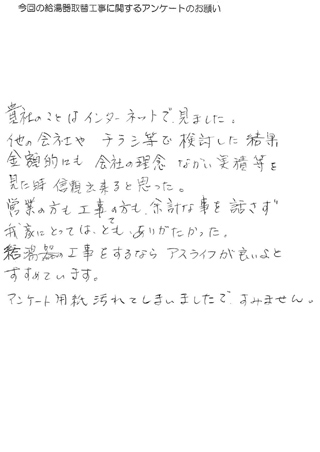 今回の給湯器取替工事に関するアンケートのお願い
貴社のことはインターネットで、見ました。
他の会社や チラシ等で 検討した 結果
金額的にも 会社の理念 ながい 実績等を
見た時 信頼出来ると思った。
営業の方も 工事の方も、余計な事を 話さず
我家にとっては、とても、ありがたかった。
給湯器の工事をするなら アスライフが良いよと
すすめています。
アンケート用紙 汚れてしまいましたで、すみません。